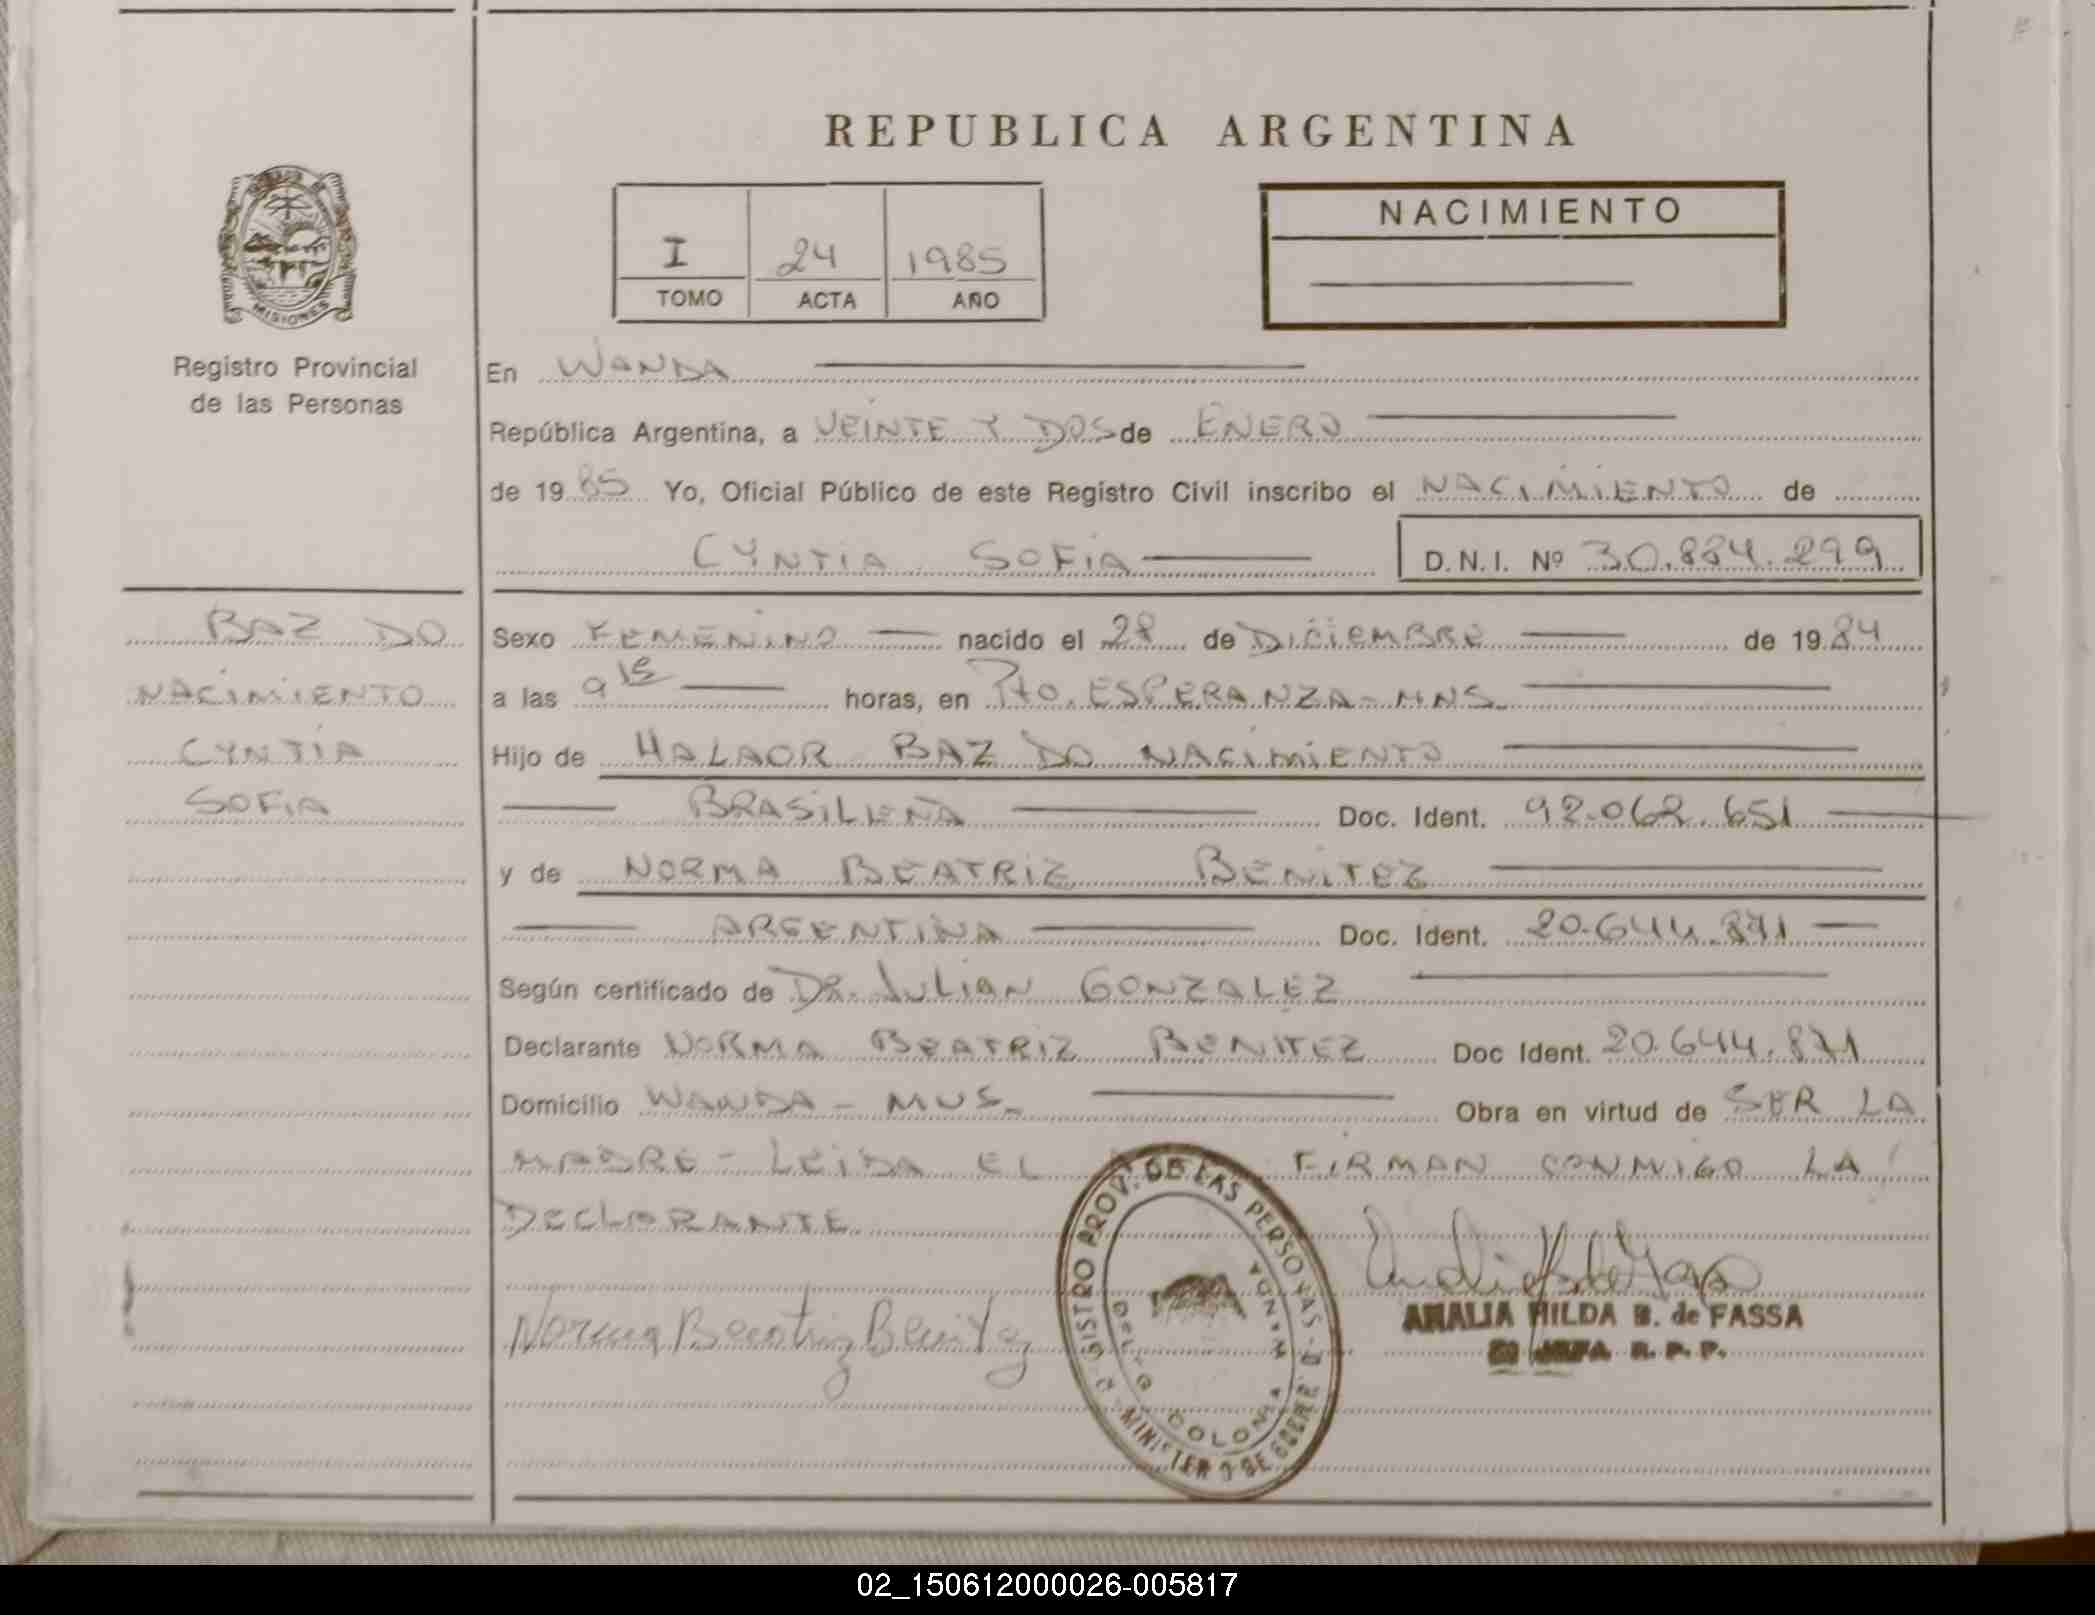 REPUBLICA ARGENTINA
NACIMIENTO
I 24 1985
TOMO ACTA AÑO
MISIONES
Registro Provincial
de las Personas
En WANDA
República Argentina, a VEINTE Y DOS de ENERO
de 19 85 Yo, Oficial Público de este Registro Civil inscribo el NACIMIENTO de
CYNTIA SOFIA D.N.I. Nº 30.884.299
BAZ DO
NACIMIENTO
CYNTIA
SOFIA
Sexo FEMENINO nacido el 28 de DICIEMBRE de 19 84
a las 9 15 horas, en Pto. ESPERANZA - MNS.
Hijo de HALAOR BAZ DO NACIMIENTO
BRASILEÑA Doc. Ident. 92.062.651
y de NORMA BEATRIZ BENITEZ
ARGENTINA Doc. Ident. 20.644.871
Según certificado de DR. JULIAN GONZALEZ
Declarante NORMA BEATRIZ BENITEZ Doc Ident. 20.644.871
Domicilio WANDA - MNS. Obra en virtud de SER LA
MADRE - LEIDA EL FIRMAN CONMIGO LA
DECLARANTE
Norma Beatriz Benitez
AMALIA HILDA B. de FASSA
JEFA R. P. P.
REGISTRO PROV. DE LAS PERSONAS
MINISTERIO DE GOBIER
DEL. COLONIA WANDA
02_150612000026-005817